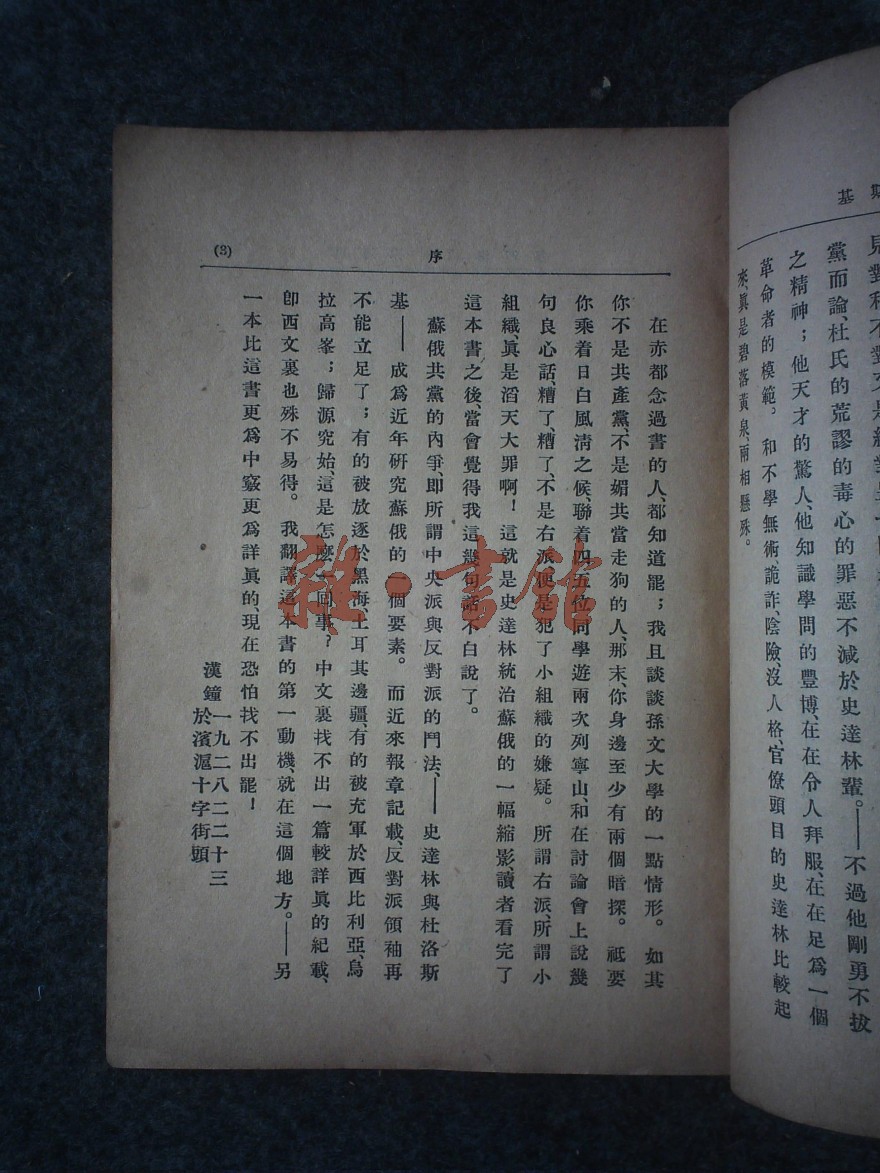 基
黨而論、杜氏的荒謬的毒心的罪惡不減於史達林輩。——不過他剛勇不拔
之精神；他天才的驚人、他知識學問的豐博、在在令人拜服、在在足爲一個
革命者的模範。和不學無術、詭詐、陰險、沒人格、官僚頭目的史達林比較起
來、眞是碧落黃泉、兩相懸殊。
序
(3)
在赤都念過書的人、都知道罷；我且談談孫文大學的一點情形。如其
你不是共產黨、不是媚共當走狗的人、那末、你身邊至少有兩個暗探。祗要
你乘着日白風淸之候、聯着四五位同學遊兩次列寧山、和在討論會上說幾
句良心話、糟了、糟了、不是右派便是犯了小組織的嫌疑。所謂右派、所謂小
組織、眞是滔天大罪啊！這就是史達林統治蘇俄的一幅縮影、讀者看完了
這本書之後、當會覺得我這幾句話不白說了。
蘇俄共黨的內爭、即所謂中央派與反對派的鬥法、——史達林與杜洛斯
基——成爲近年硏究蘇俄的一個要素。而近來報章記載、反對派領袖再
不能立足了；有的被放逐於黑海土耳其邊疆、有的被充軍於西比利亞、烏
拉高峯；歸源究始、這是怎麼一回事？中文裏找不出一篇較詳眞的紀載、
卽西文裏也殊不易得。我翻譯這本書的第一動機、就在這個地方。——另
一本比這書更爲中竅更爲詳眞的、現在恐怕找不出罷！
漢鐘一九二八二二十三
於濱滬十字街頭
雜·書館